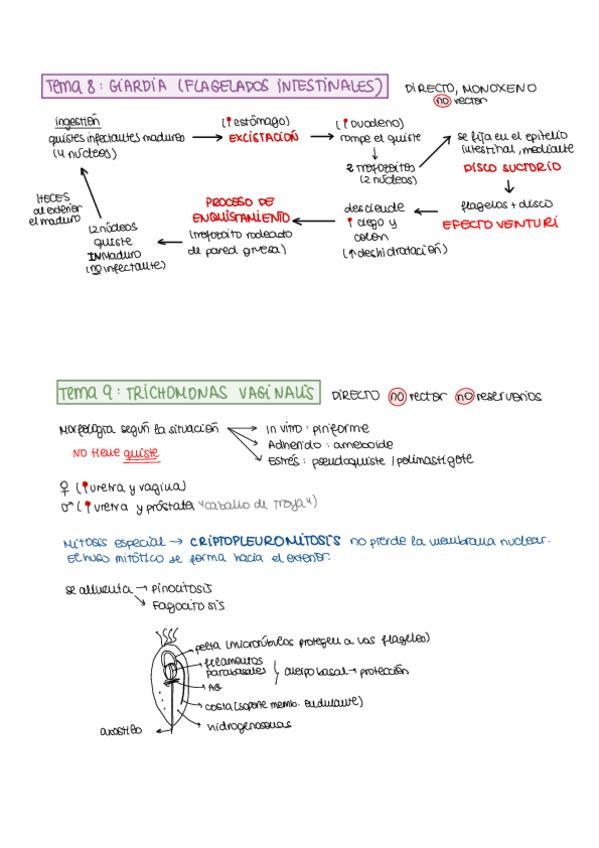 Tema 8: GIARDIA (FLAGELADOS INTESTINALES)
DIRECTO, MONOXENO
no vector
ingestión
quistes infectantes maduros
(4 núcleos)
(estómago)
EXCISTACIÓN
(duodeno)
rompe el quiste
2 trofozoitos
(2 núcleos)
se fija en el epitelio
intestinal, mediante
DISCO SUCTORIO
flagelos + disco
EFECTO VENTURI
desciende
ciego y
colon
(↑ deshidratación)
PROCESO DE
ENQUISTAMIENTO
(trofozoito rodeado
de pared gruesa)
12 núcleos
quiste
INMaduro
(no infectante)
HECES
al exterior
el maduro
Tema 9: TRICHOMONAS VAGINALIS
DIRECTO no vector no reservorios
Morfología según la situación
In vitro: piriforme
Adherido: ameboide
Estrés: pseudoquiste / polimastigote
NO tiene quiste
♀ (uretra y vagina)
♂ (uretra y próstata "caballo de Troya")
Mitosis especial → CRIPTOPLEUROMITOSIS no pierde la membrana nuclear.
El huso mitótico se forma hacia el exterior.
se alimenta → pinocitosis
Fagocitosis
pelta (microtúbulos protegen a los flagelos)
filamentos
parabasales
cuerpo basal → protección
AG
costa (soporte memb. ondulante)
hidrogenosomas
axostilo